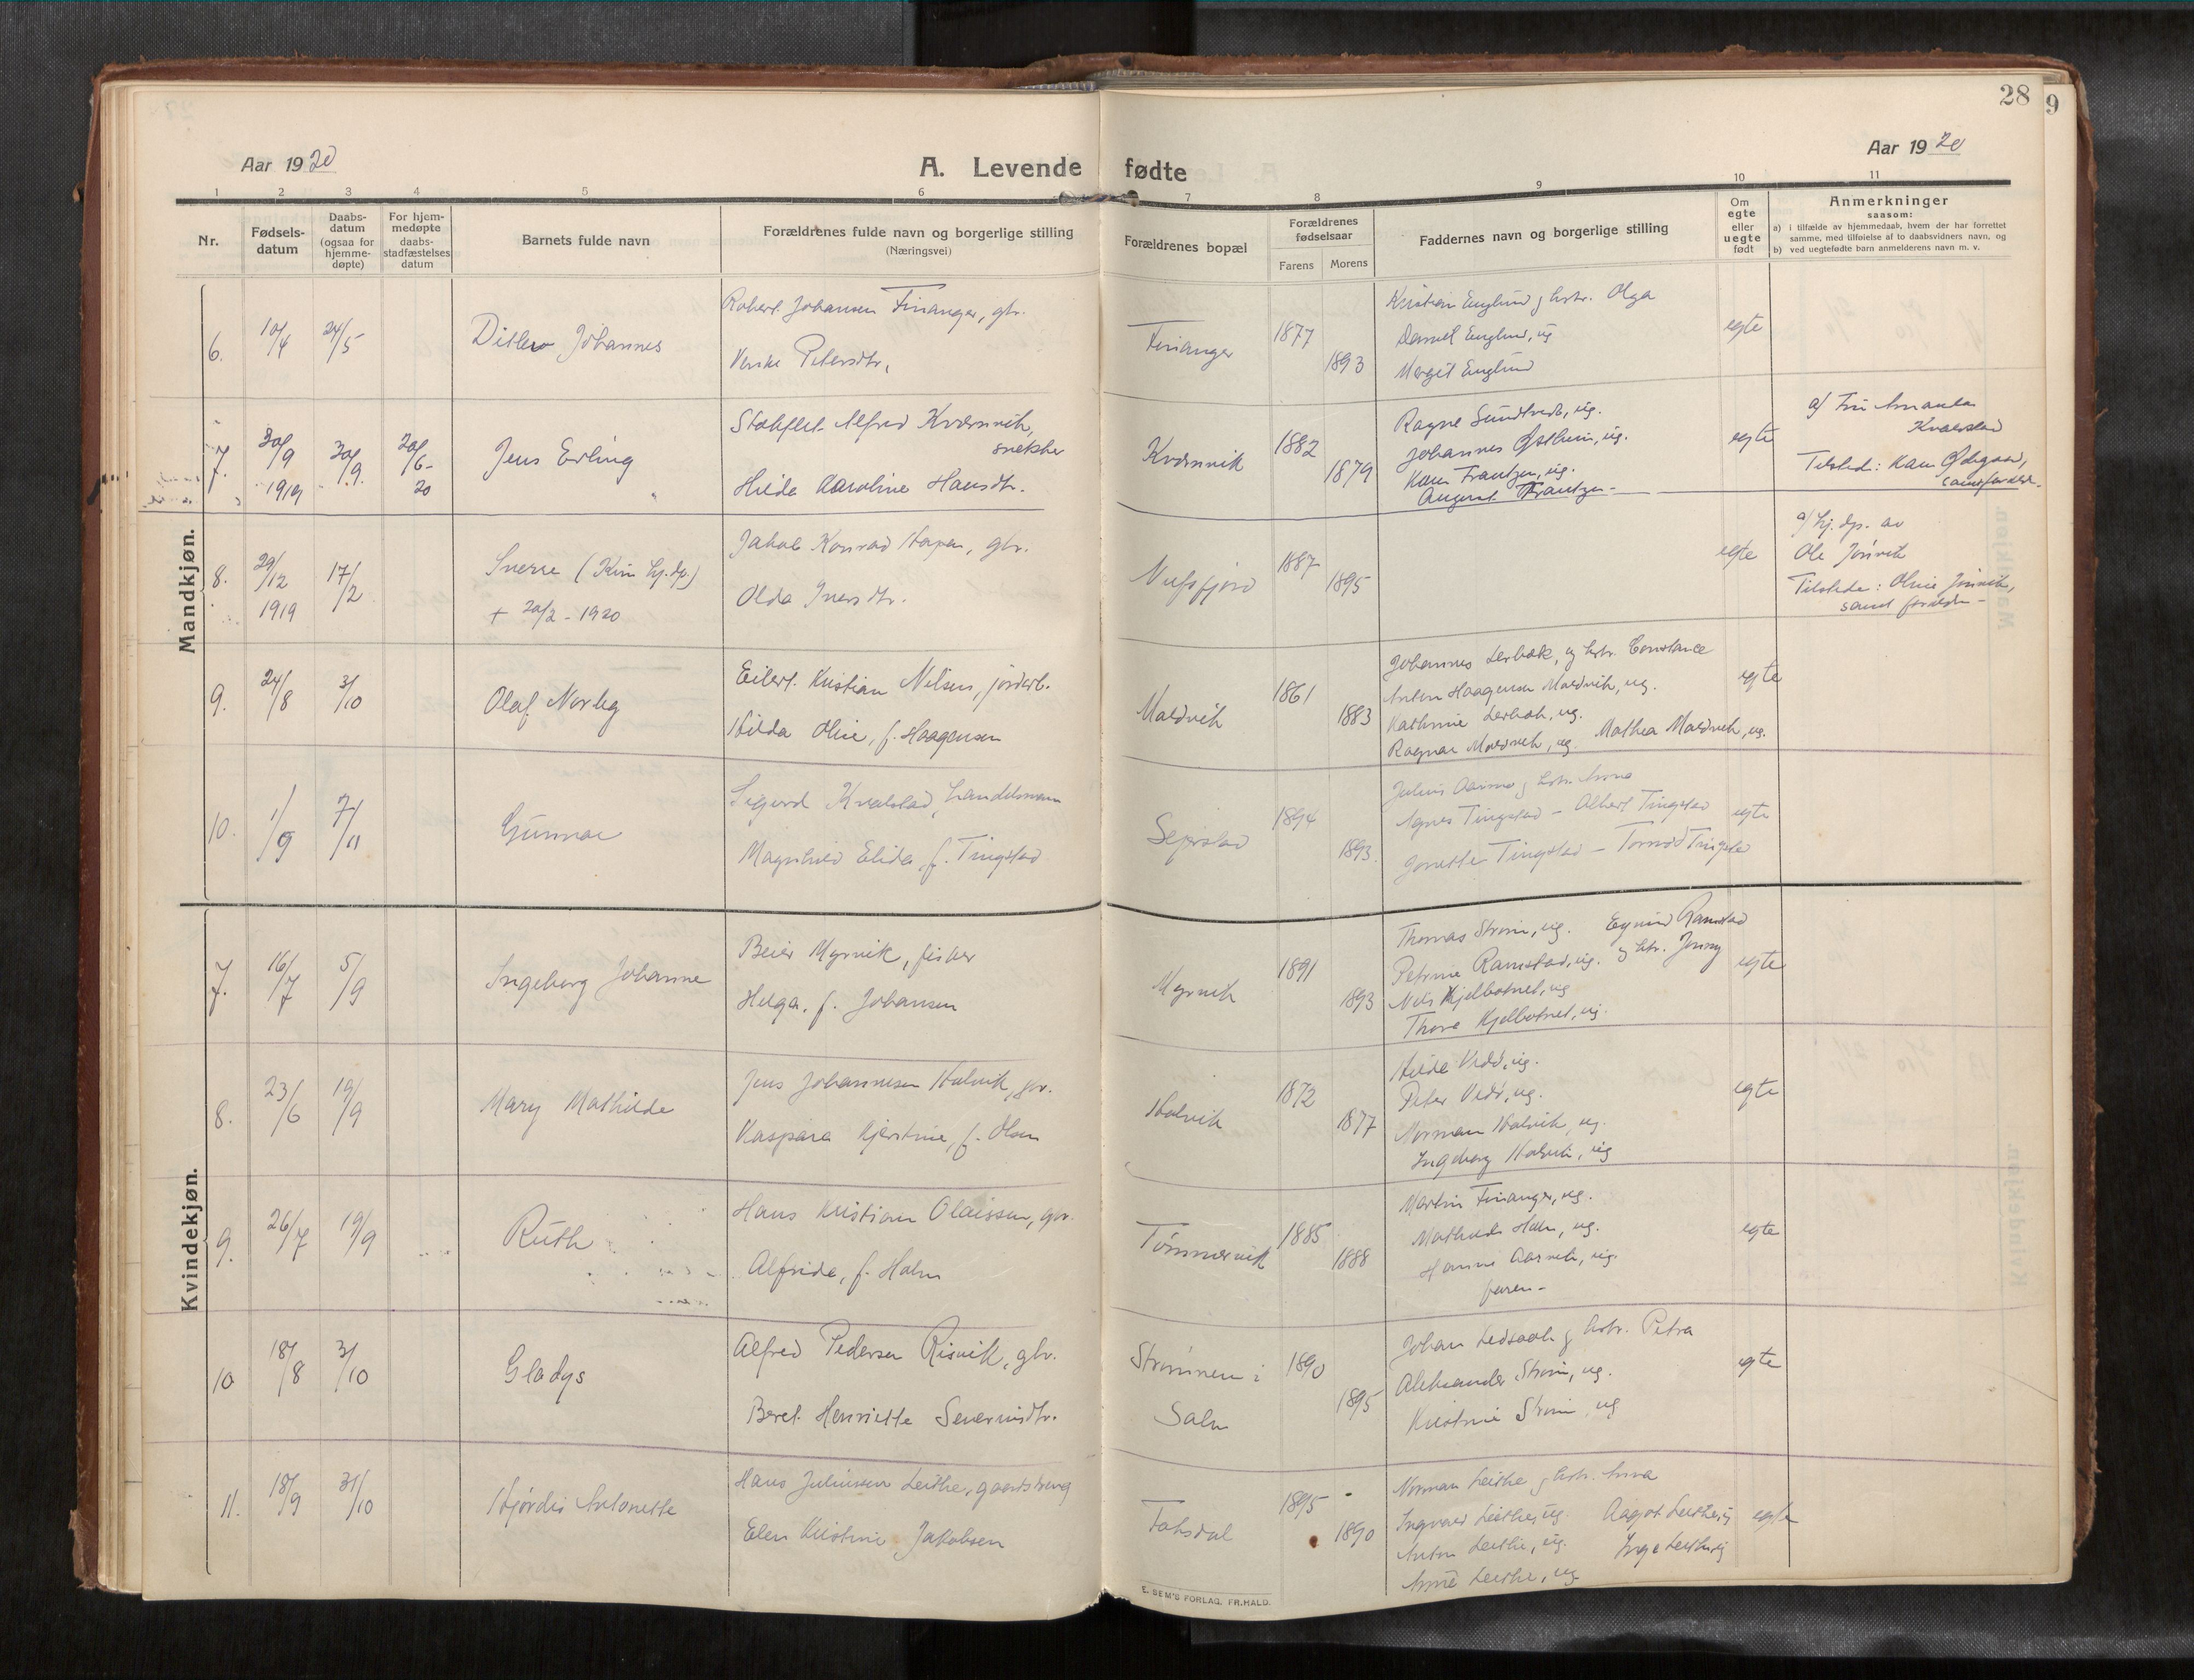 28
9
Aar 1920
A. Levende fødte
Aar 1920
1 2 3 4 5 6 7 8 9 10 11
Nr.
Fødsels-
datum
Daabs-
datum
(ogsaa for
hjemme-
døpte)
For hjem-
medøpte
daabs-
stadfæstelses
datum
Barnets fulde navn
Forældrenes fulde navn og borgerlige stilling
(Næringsvei)
Forældrenes bopæl
Forældrenes
fødselsaar
Farens Morens
Faddernes navn og borgerlige stilling
Om
egte
eller
uegte
født
Anmerkninger
saasom:
a) i tilfælde av hjemmedaab, hvem der har forrettet
samme, med tilføielse af to daabsvidners navn, og
b) ved uegtefødte barn anmelderens navn m. v.
Mandkjøn.
6. 10/4 24/5
Ditlev Johannes
Robert Johansen Finanger, gbr.
Petersdtr.
Finanger
1877
1893
Kristian Englund og hstr. Olga
Daniel Englund, ug
Margit Englund
egte
7. 30/9 1919 30/9 20/6-20
Jens Erling
Alfred Kvernvik,
snekker
Hilda Karoline Hansdtr.
Kvernvik
1882
1879
Ragne Sundtvedt, ug.
Johannes Østheim, ug.
Karen Frantzen, ug.
August Frantzen
egte
a/ Fru Amanda
Kvalstad
Tilsted: Kau Ødegaard,
8. 29/12 1919 17/2
Sverre (Kun hj. dp.)
+ 20/2 - 1920
Jakob Konrad gbr.
Olda Iversdtr.
1887
1895
egte
a/ hj. dp. av
Ole Jørvik
Tilstede: Oline Jørvik,
samt forældre
9. 24/8 3/10
Olaf Norleg
Eilert Kristian Nilsen, jordarb.
Hilda Oline, f. Haagensen
Malvik
1861
1883
Johannes Lerbæk, og hstr. Constance
Anton Haagensen Malvik, ug.
Kathrine Lerbæk, ug.
Ragnar Malvik, ug. Mathea Malvik, ug.
egte
10. 1/9 7/11
Gunnar
Sigurd Kvalstad, handelsmann
Magnhild Elida f. Tingstad
Sepistad
1894
1893.
Julius Aarmo og hstr. Anna
Agnes Tingstad - Albert Tingstad
Jonette Tingstad -
egte
Kvindekjøn.
7. 16/7 5/9
Ingeborg Johanne
Beier Myrvik, fisker
Helga, f. Johansen
Myrvik
1891
1893
Thomas Strøm, ug. Eyvind Ramstad
Petrine Ramstad, ug. og hstr. Jenny
Nels Kjelbotnet, ug
Thora Kjelbotnet, ug.
egte
8. 23/6 19/9
Mary Mathilde
Jens Johannesen Holvik, gbr.
Kaspara Kjerstine, f. Olsen
Holvik
1872
1877
Hilda Vedø, ug.
Peter Vedø, ug.
Norman Holvik, ug.
Ingeborg Holvik, ug
egte
9. 26/7 19/9
Ruth
Hans Kristian Olaissen, gbr.
Alfrida, f. Holm
Tømmervik
1885
1888
Martin Finanger, ug.
Mathilde Holm, ug.
Hanna Aarvik, ug.
faren-
egte
10 18/8 3/10
Gladys
Alfred Pedersen Risvik, gbr.
Beret Henriette Severinsdtr.
Strømnen i
Saln
1890
1895
Johan Ledsaak og hstr. Petra
Aleksander Strøm, ug.
Kristine Strøm ug
egte
11. 18/9 31/10
Hjørdis Antonette
Hans Juliussen Leithe, gaardsdreng
Elen Kristine Jakobsen
Faksdal
1895
1890
Norman Leithe og hstr. Anna
Ingvald Leithe, ug. Aagot Leithe, ug
Anton Leithe, ug. Inga Leithe, ug
Anne Leithe, ug
egte
E. SEM'S FORLAG, FR.HALD.